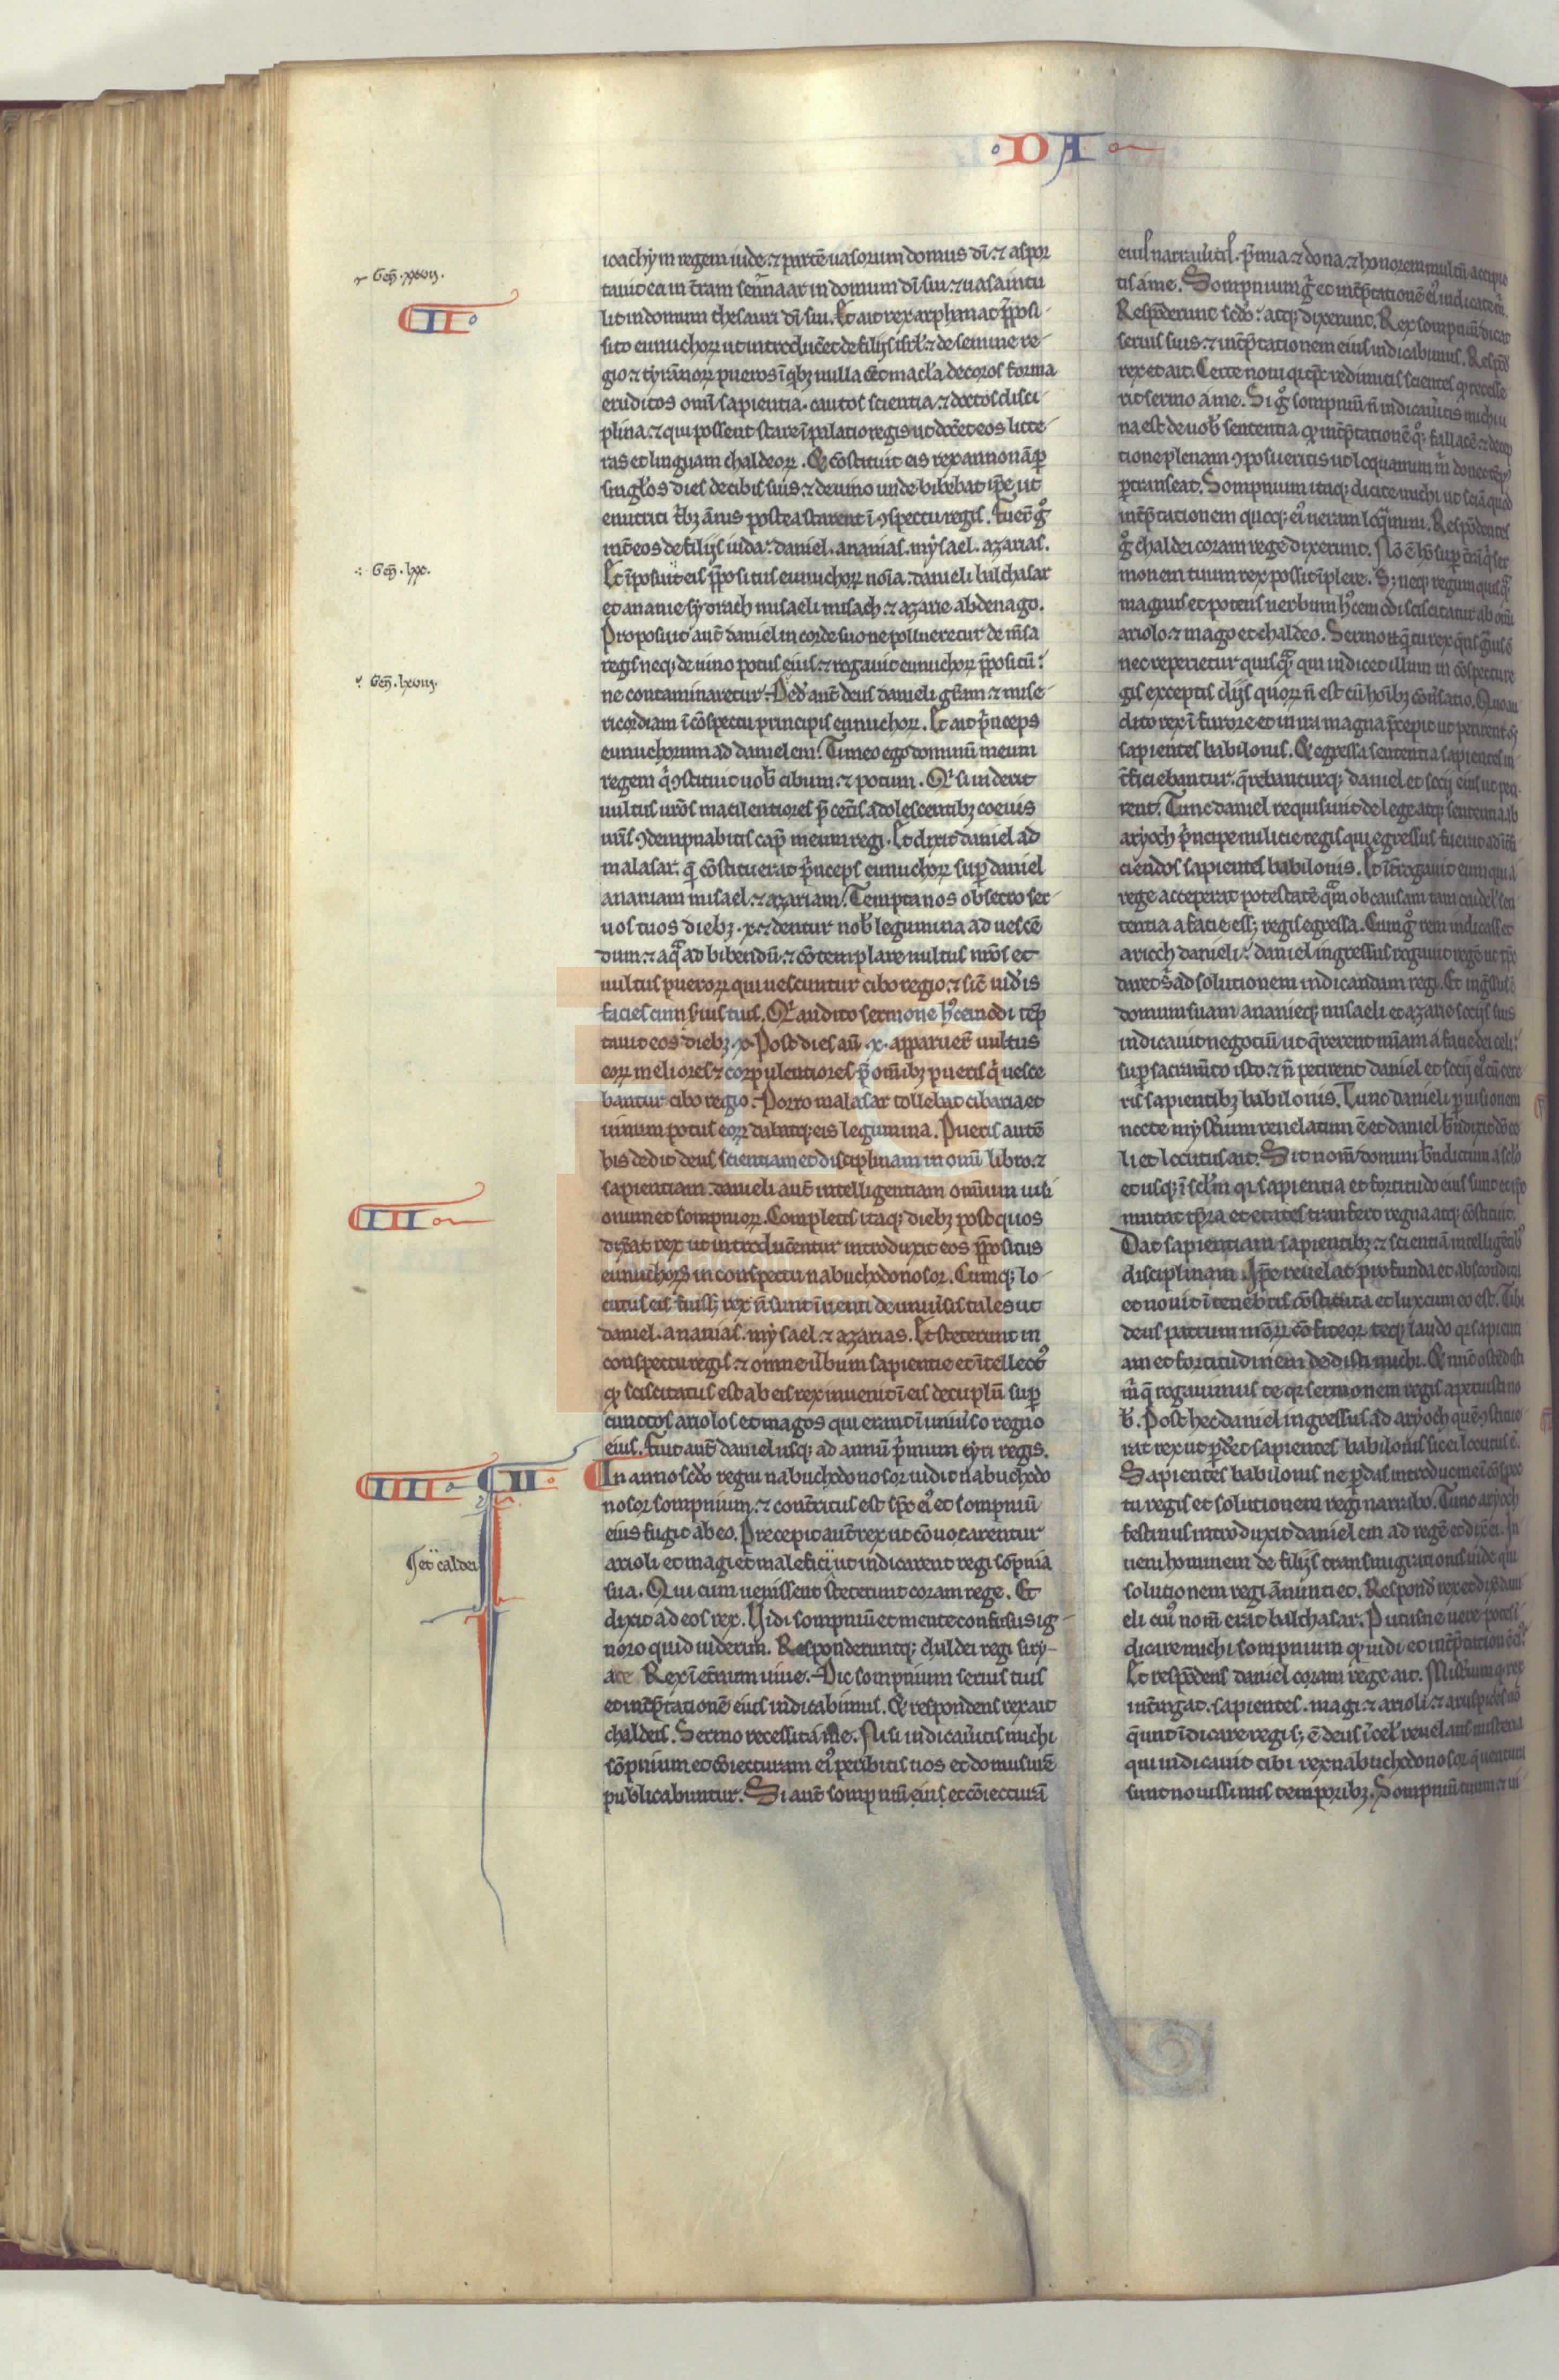 · D A
Gen̄ .xxvii.
II
Gen̄ .lxx.
Gen̄ .lxviii.
III
IIII II
et caldei
ioachym regem iude. ⁊ partē uasorum domus dī. ⁊ aspor
tauit ea in t̄ram sennaar in domum dī sui. ⁊ uasa intu
lit in domum thesauri dī sui. Et ait rex asphanat p̄posi
sito eunuchoꝝ ut introduc̄et de filijs isrl̄. ⁊ de semine re
gio ⁊ tyrānoꝝ pueros ī qb; nulla eēt macl̄a decoros forma
eruditos omī sapientia. cautos scientia. ⁊ doctos disci
plina. ⁊ qui possent stare ī palatio regis ut doc̄et eos litte
ras et linguam chaldeoꝝ. Et cōstituit eis rex annonā ꝑ
singl̄os dies de cibis suis. ⁊ de uino unde bibebat ip̄e ut
enutriti t̄b; ānis postea starent ī ꝯspectu regis. Fuer̄t gͦ
int̄ eos de filijs iuda: daniel. ananias. mysael. azarias.
Et īposuit eis p̄positus eunuchoꝝ noīa. danieli balthasar
et ananie sydrach misaeli misach. ⁊ azarie abdenago.
Proposuit aut̄ daniel in corde suo ne pollueretur de m̄sa
regis neq; de uino potus eius. ⁊ rogauit eunuchoꝝ p̄positū:
ne contaminaretur. Ded̄ aut̄ deus danieli gr̄am ⁊ mise
ricordiam ī cōspectu principis eunuchoꝝ. Et ait p̄nceps
eunuchorum ad danielem. Timeo ego dominū meum
regem q̄ ꝯstituit uob̄ cibum. ⁊ potum. Qͥ si uiderit
uultus ur̄os macilentiores p̄ cet̄is adolescentib; coeuis
ur̄is ꝯdempnabitis cap̄ meum regi. Et dixit daniel ad
malasar. q̄ cōstituerat p̄nceps eunuchoꝝ suꝑ daniel
ananiam misael. ⁊ azariam. Tempta nos obsecro ser
uos tuos dieb; .x. ⁊ dentur nob̄ legumina ad uescē
dum. ⁊ aqͣ ad bibendū. ⁊ cōtemplare uultus nr̄os et
uultus pueroꝝ qui uescuntur cibo regio. ⁊ sic̄ uid̄is
facies cum seruis tuis. Qͥ audito sermone hͦcemodi tēp
tauit eos dieb; .x. Post dies aū .x. apparuer̄t uultus
eoꝝ meliores ⁊ corpulentiores p̄ omīb; pueris q̄ uesce
bantur cibo regio. Porro malasar tollebat cibaria et
uinum potus eoꝝ dabatq; eis legumina. Pueris autē
his dedit deus scientiam et disciplinam in omī libro. ⁊
sapientiam. danieli aut̄ intelligentiam omīum uisi
onum et sompnioꝝ. Completis itaq; dieb; post quos
dix̄at rex ut introduc̄entur introduxit eos p̄positus
eunuchoꝝ in conspectu nabuchodonosor. Cumq; lo
cutus eis fuiss; rex n̄ sunt īuenti de uniu̇sis tales ut
daniel. ananias. mysael. ⁊ azarias. Et steterunt in
conspectu regis. ⁊ omne u̇bum sapientie et ītellectꝰ
qͦ sciscitatus est ab eis rex inuenit ī eis decuplū suꝑ
cunctos ariolos et magos qui erant ī uniu̇so regno
eius. Fuit aut̄ daniel usq; ad annū p̄mum cyri regis.
In anno scd̄o regni nabuchodonosor uidit nabuchodo
nosor sompnium. ⁊ cont̄ritus est sp̄c eiꝰ et sompniū
eius fugit ab eo. Precepit aut̄ rex ut cōuocarentur
arioli et magi et malefici ut indicarent regi sōpnia
sua. Qui cum uenissent steterunt coram rege. Et
dixit ad eos rex. Uidi sompniū et mente confusus ig
noro quid uiderim. Responderuntq; chaldei regi siry
ace. Rex ī et̄num uiue. Dic sompnium seruis tuis
et int̄p̄tationē eius indicabimus. Et respondens rex ait
chaldeis. Sermo recessit a me. Nisi indicau̇itis michi
sōpnium et cōiecturam eiꝰ peribitis uos et domus ur̄e
publicabuntur. Si aut̄ sompniū eius et cōiecturā
eius narrau̇itis. p̄mia. ⁊ dona. ⁊ honorem multū accipie
tis a me. Sompnium gͦ et int̄p̄tationē eiꝰ indicate m̄.
Respōderunt scd̄o: atq; dixerunt. Rex sompniū dicat
seruis suis. ⁊ int̄p̄tationem eius indicabimus. Respōd̄
rex et ait. Certe noui qꝛ tp̄c redimitis scientes qͦ recesse
rit sermo a me. Si gͦ sompniū n̄ indicau̇itis michi u
na est de uob̄ sententia qͦ int̄p̄tationē q̇; fallacē ⁊ decep
tione plenam ꝯposueritis ut loquamini m̄ donec tēp̄
ꝑtranseat. Sompnium itaq; dicite michi ut sciā quod
int̄p̄tationem quoq; eiꝰ ueram loq̄mini. Respōdentes
gͦ chaldei coram rege dixerunt. Nō ē hō suꝑ t̄rā q̇ ser
monem tuum rex possit īplere. S; neq; regum quisqͣ
magnus et potens uerbum hͦcemodi sciscitatur ab omī
ariolo. ⁊ mago et chaldeo. Sermo. n. q̄ tu rex q̄ris gͣuis ē
nec reperietur quisqͣ qui indicet illum in cōspectu re
gis exceptis dijs quoꝝ n̄ est cū hoīb; conu̇satio. Quo au
dito rex ī furore et in ira magna p̄cepit ut perirent oṁs
sapientes babilonis. Et egressa sententia sapientes in
t̄ficiebantur. q̄rebanturq; daniel et socij eius ut peri
rent. Tunc daniel requisiuit de lege atq; sententia ab
aryoch p̄ncipe milicie regis qui egressus fuerat ad int̄fi
ciendos sapientes babilonis. Et īt̄rogauit eum qui a
rege acceperat potestatē qͣm ob causam tam crudel̄ sen
tentia a facie ess; regis egressa. Cum gͦ rem indicasset
arioch danieli: daniel ingressus rogauit regē ut tp̄c
daret s̄ ad solutionem indicandam regi. Et ingr̄ssus ē
domum suam ananieq; misaeli et azarie socijs suis
indicauit negotiū ut q̄rerent mīam a facie dei celi:
suꝑ sacram̄to isto. ⁊ n̄ perirent daniel et socij eiꝰ cū cete
ris sapientib; babilonis. Tunc danieli ꝑ uisionem
nocte mysterium reuelatum ē et daniel bn̄dixit dō ce
li et locutus ait. Sit nom̄ domini bn̄dictum a sc̄lo
et usq; ī scl̄m qꝛ sapientia et fortitudo eius sunt et ip̄e
mutat tp̄ra et etates transfert regna atq; cōstituit.
Dat sapientiam sapientib; ⁊ scientiā intelligētib;
disciplinam. Ip̄e reuelat profunda et abscondita
et nouit ī tenebris cōstituta et lux cum eo est. Tibi
deus patrum nr̄oꝝ cōfiteor teq; laudo qꝛ sapienti
am et fortitudinem dedisti michi. Et nūc ostēdisti
m̄ q̄ rogauimus te qꝛ sermonem regis aperuisti no
b̄. Post hec daniel ingressus ad aryoch quē ꝯstitue
rat rex ut ꝑd̄et sapientes babilonis sic ei locutus ē.
Sapientes babilonis ne ꝑdas introduc me ī cōspec
tu regis et solutionem regi narrabo. Tunc aryoch
festinus introduxit danielem ad regē et dix̄ ei. In
ueni hominem de filijs transmigrationis iude qui
solutionem regi ānuntiet. Respond̄ rex et dix̄ dani
eli cuiꝰ nom̄ erat balthasar. Putasne uere potes ī
dicare michi sompnium qͦ uidi et int̄p̄tationē eiꝰ:
Et respōdens daniel coram rege ait. Misterium q̄ rex
int̄rogat. sapientes. magi. ⁊ arioli. ⁊ aruspices nō
q̄unt īdicare regi s; ē deus ī cel̄ reuelans misteria
qui indicauit tibi rex nabuchodonosor q̄ uentura
sunt nouissimis temporib;. Sompniū tuum et ui